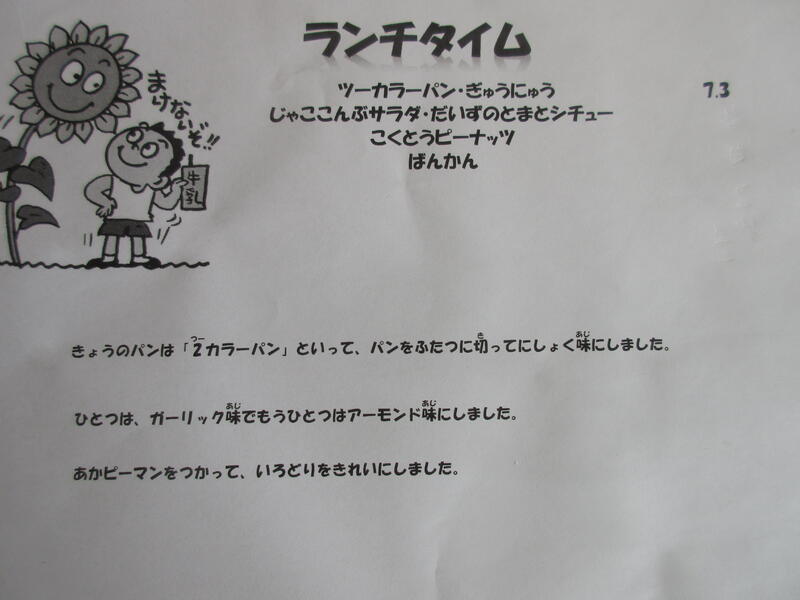 ランチタイム
まけないぞ!!
牛乳
ツーカラーパン・ぎゅうにゅう
7.3
じゃここんぶサラダ・だいずのとまとシチュー
こくとうピーナッツ
ばんかん
きょうのパンは「2カラーパン」といって、パンをふたつに切ってにしょく味にしました。
つー
き
あじ
ひとつは、ガーリック味でもうひとつはアーモンド味にしました。
あじ
あじ
あかピーマンをつかって、いろどりをきれいにしました。